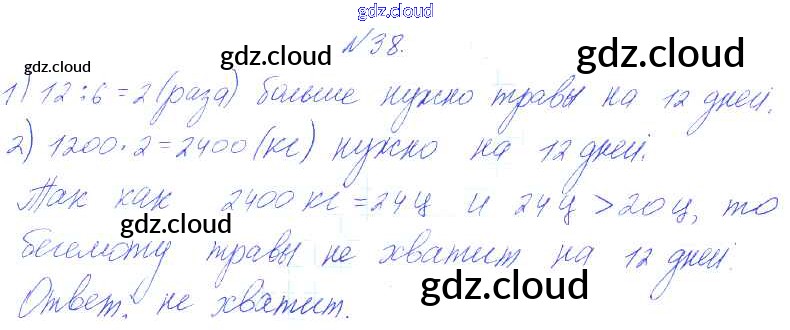 gdz.cloud
gdz.cloud gdz.cloud
№38.
gdz.cloud gdz.cloud
1) 12:6=2(раза) больше нужно травы на 12 дней.
2) 1200·2=2400(кг) нужно на 12 дней.
Так как 2400кг=24ц и 24ц>20ц, то
gdz.cloud
бегемоту травы не хватит на 12 дней.
gdz.cloud gdz.cloud
Ответ: не хватит.